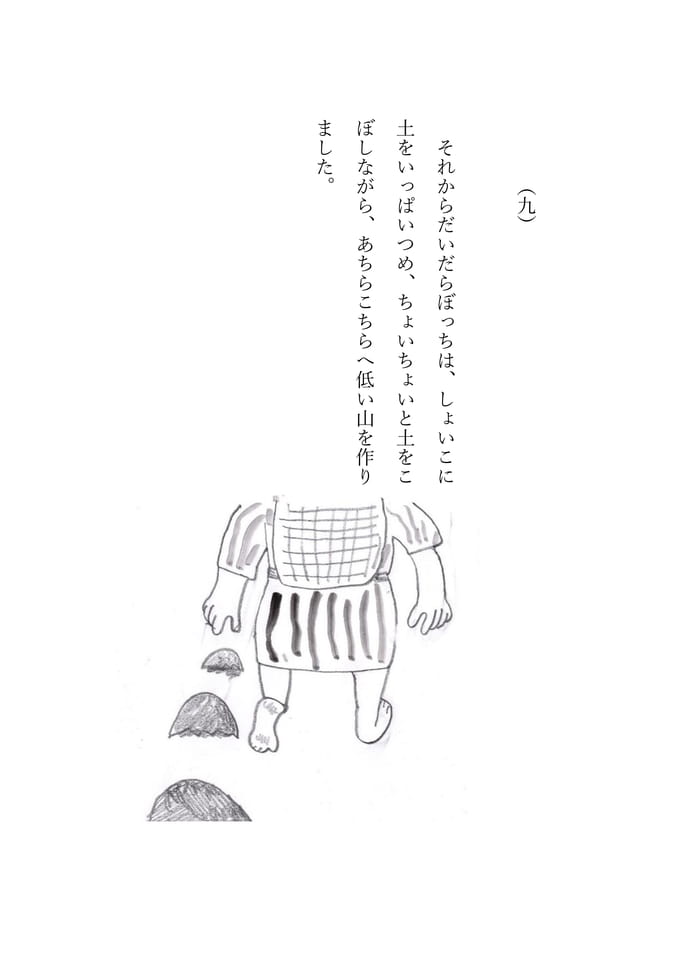 （九）
それからだいだらぼっちは、しょいこに
土をいっぱいつめ、ちょいちょいと土をこ
ぼしながら、あちらこちらへ低い山を作り
ました。